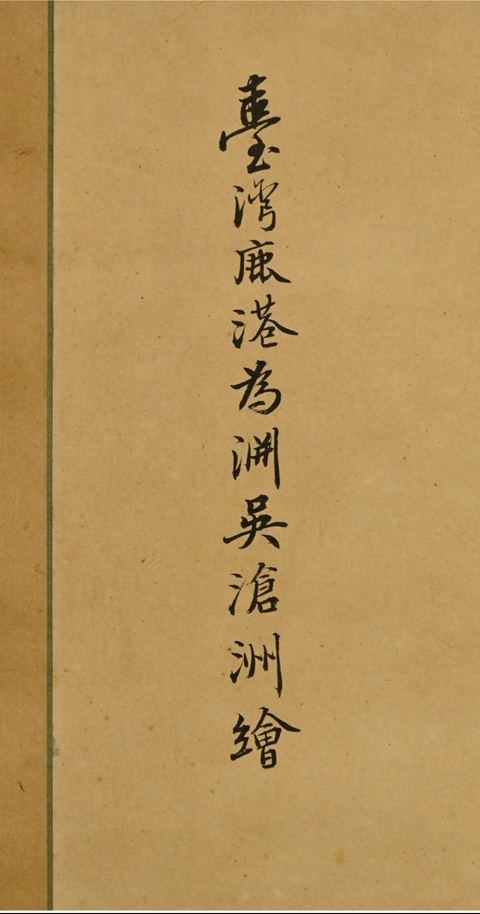 臺灣鹿港為淵吳滄洲繪